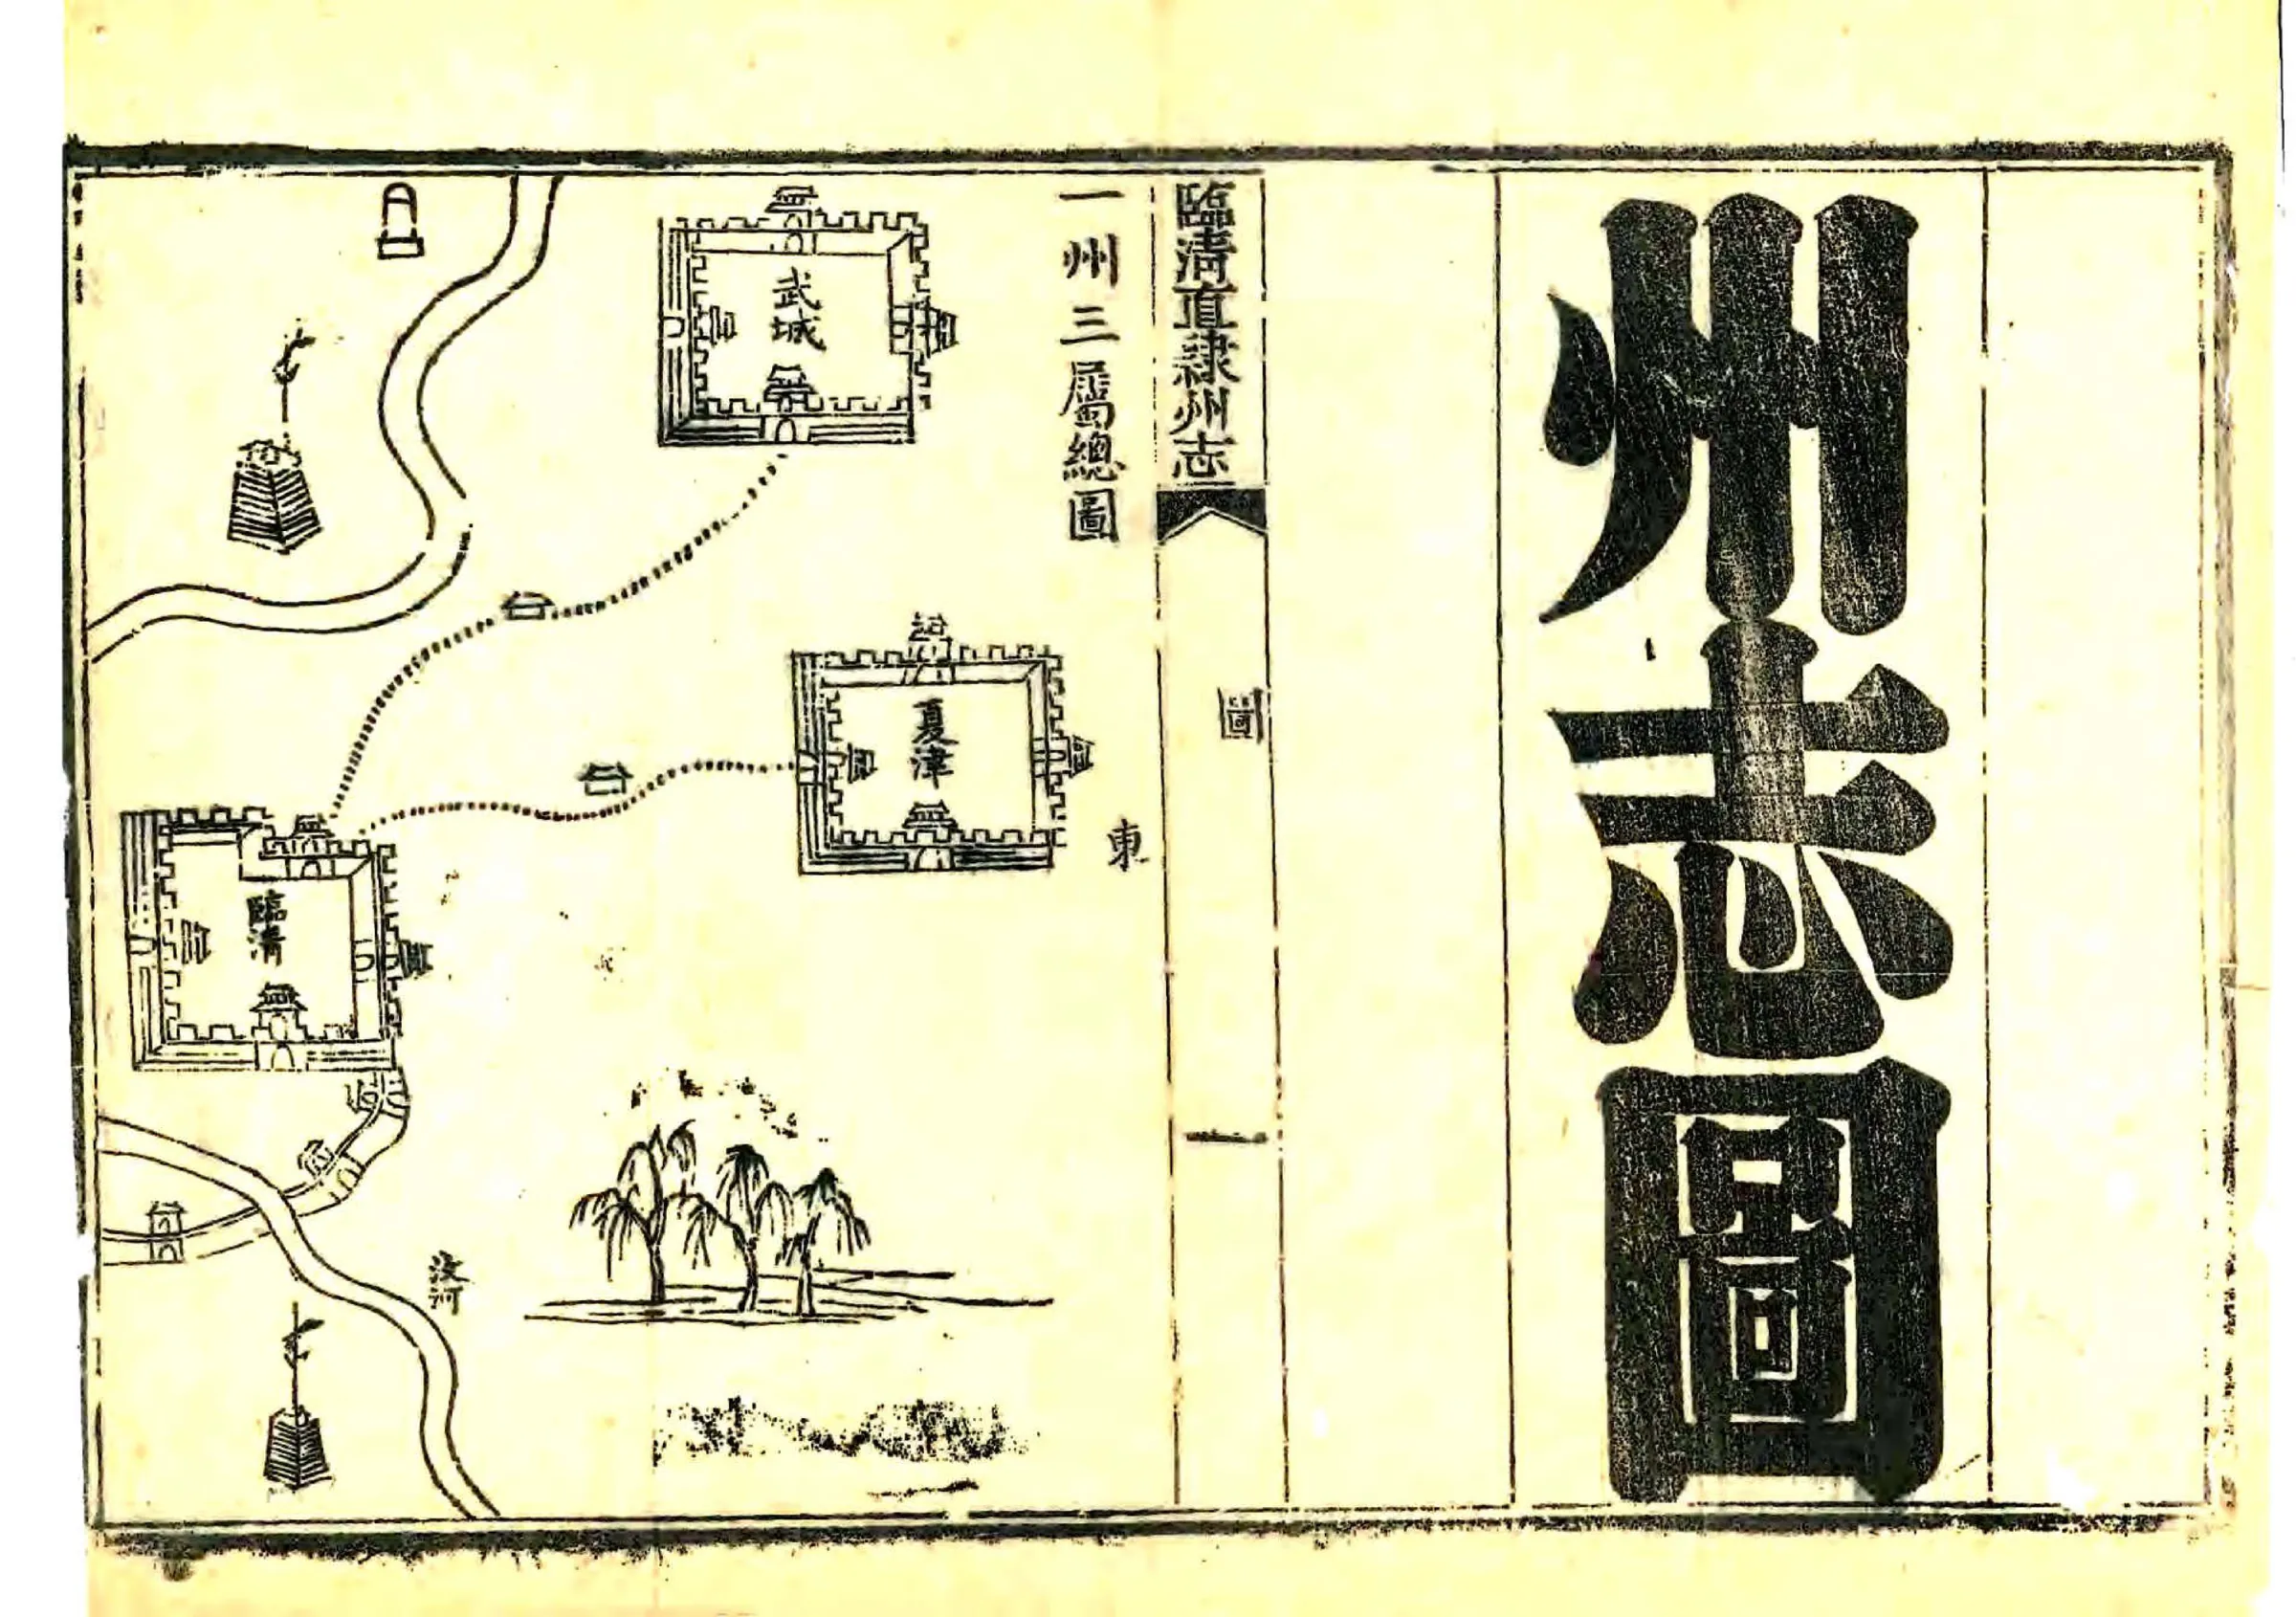 州志圖
臨清直隸州志
圖
一
一州三屬總圖
東
武城
夏津
臨清
汶河